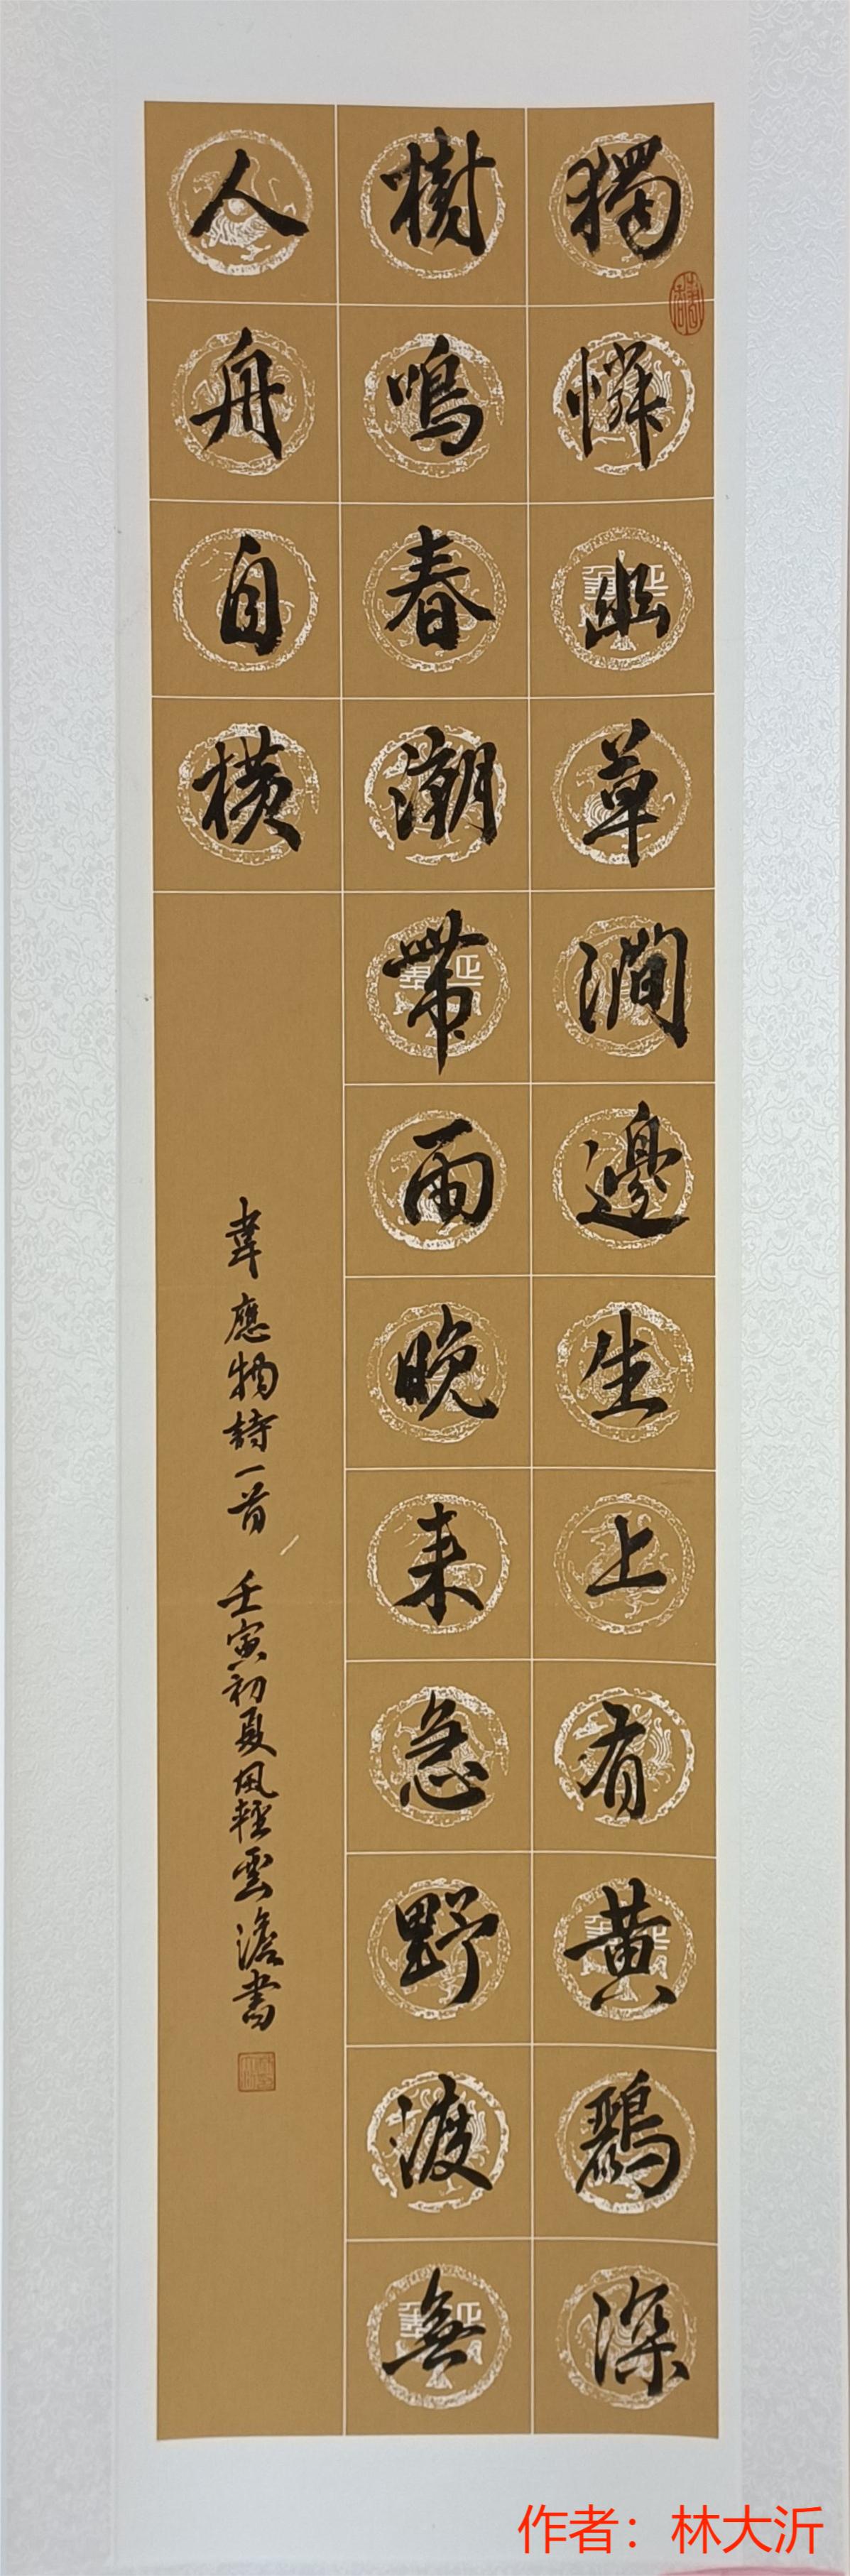 獨憐幽草澗邊生上有黃鸝深
樹鳴春潮帶雨晚来急野渡無
人舟自横
韋應物詩一首 壬寅初夏風輕雲澹書
作者：林大沂